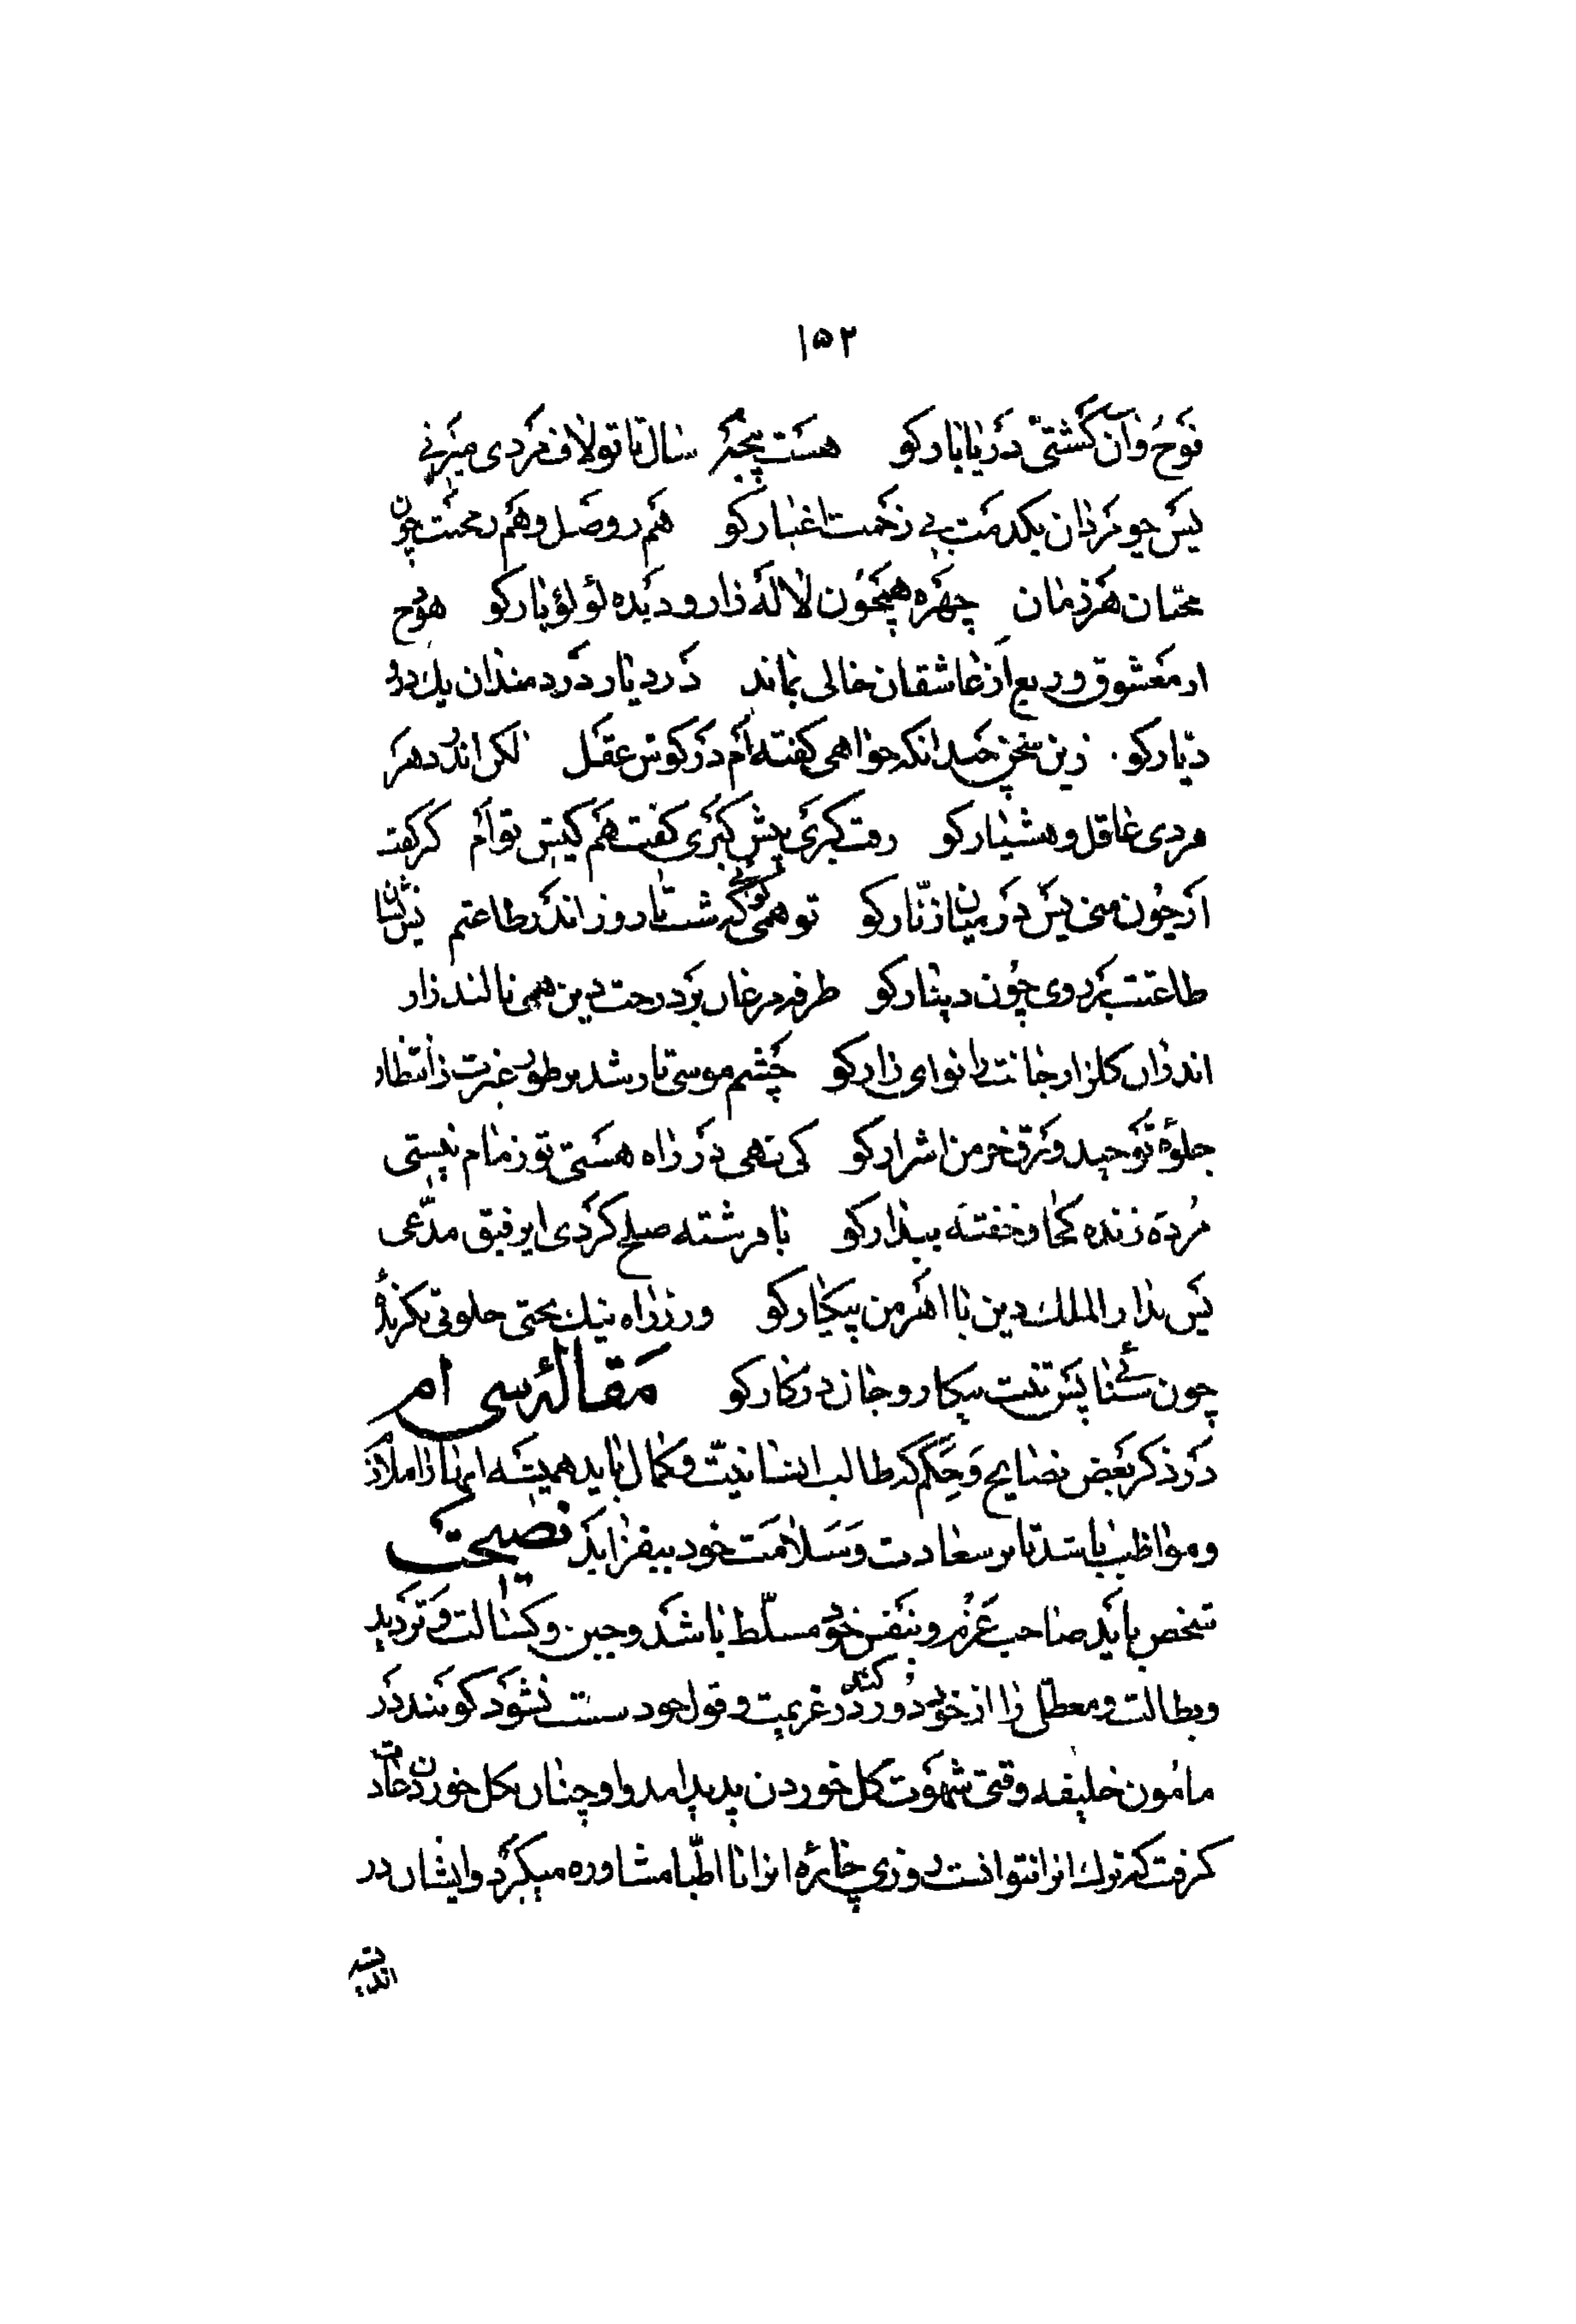 ۱۵۲
نوح و آن کشتی دریا بار کو هست پنجه سال تا تو لاف مردی میزنی
پس چو مردان یکدمت بی زحمت اغیار کو هم در وصل و هم محنت چون
محبان هر زمان چهره همچون لاله زار و دیده لؤلؤ بار کو
از معشوق و ربع از عاشقان خالی بماند در دیار دردمندان یک در
دیار کو زین سخن چندانکه خواهی گفته ام در کوش عقل لکن اندر دهر
مردی عاقل و هشیار کو رفت کبری پیش کبری گفت هم کیش توام کر
ار چون من پس در میان زنار کو تو همی کوئی که شب تا روز اندر طاعتم پس نشان
طاعتت بر روی چون دینار کو طرفه مرغان بر درخت دین همی نالند زار
اندران کلزار جانت را نوای زار کو چشم موسی تار شد بر طور غیرت ز انتظار
جلوهٔ توحید و برق خرمن اشرار کو کی نهی در راه هستی تو زمام نیستی
مرده زنده کجا و خفته بیدار کو با فرشته صلح کردی ای رفیق مدعی
پس بدار الملک دین با اهرمن پیکار کو ور ز راه نیک بختی خلوتی بکزیدهٔ
چون سنائی پس تنت بیکار و جان در کار کو مقالهٔ سی ام
در ذکر بعض نصایح و حکم که طالب انسانیت و کمال باید همیشه اینها را
و مواظب باشد تا بر سعادت و سلامت خود بیفزاید نصیحت
شخص باید صاحب عزم و بنفس خود مسلط باشد و جبن و کسالت و تردید
و بطالت و معطلی را از خود دور کند در عزیمت و قول خود سست نشود کویند در
مامون خلیفه وقتی شهوت کل خوردن پدید امد و او چنان بکل خوردن عادت
کرفت که ترک انرا نتوانست روزی چارهٔ انرا با اطبا مشاوره میکرد و ایشان در
اندیشه